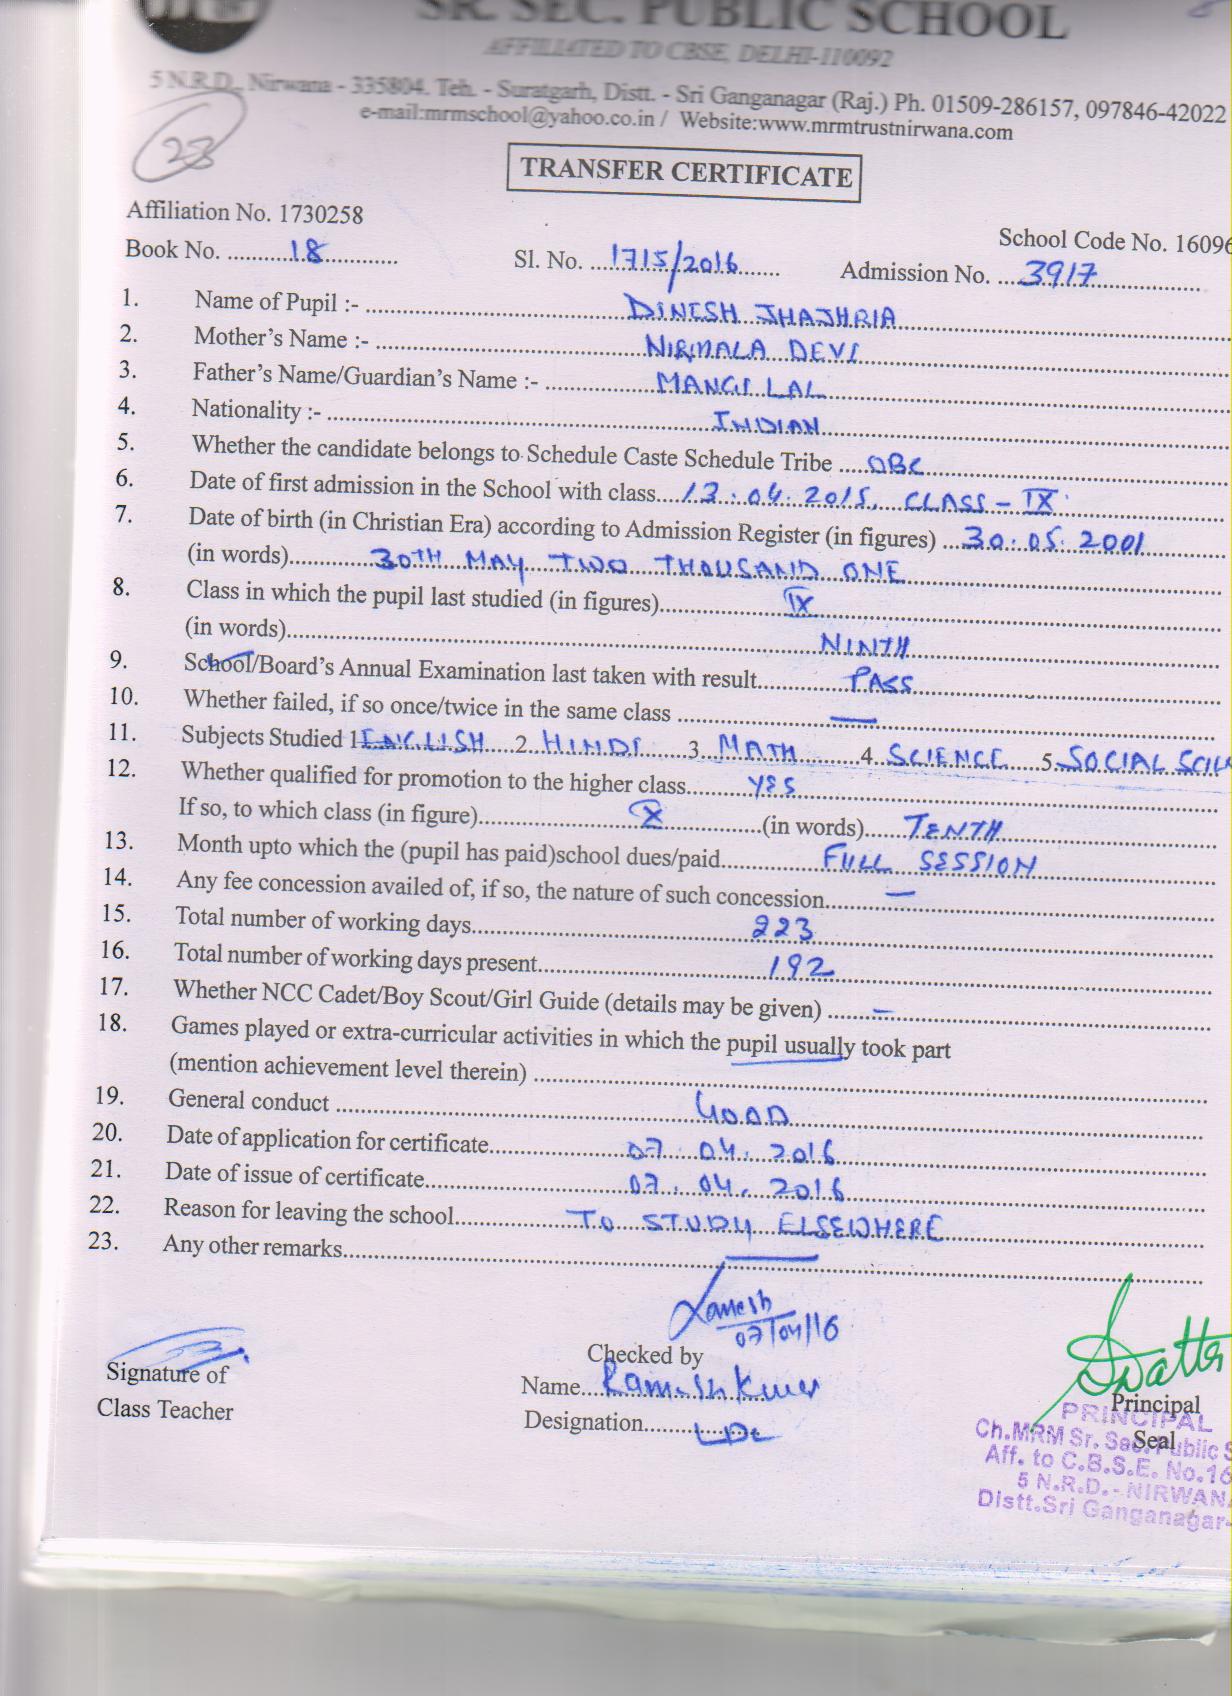 SR. SEC. PUBLIC SCHOOL
AFFILIATED TO CBSE, DELHI-110092
5 N.R.D., Nirwana - 335804. Teh. - Suratgarh, Distt. - Sri Ganganagar (Raj.) Ph. 01509-286157, 097846-42022
e-mail:mrmschool@yahoo.co.in / Website:www.mrmtrustnirwana.com
23
TRANSFER CERTIFICATE
Affiliation No. 1730258
School Code No. 16096
Book No. 18 Sl. No. 1715/2016 Admission No. 3917
1. Name of Pupil :- DINESH JHAJHRIA
2. Mother's Name :- NIRMALA DEVI
3. Father's Name/Guardian's Name :- MANGI LAL
4. Nationality :- INDIAN
5. Whether the candidate belongs to Schedule Caste Schedule Tribe OBC
6. Date of first admission in the School with class 13.04.2015, CLASS - IX
7. Date of birth (in Christian Era) according to Admission Register (in figures) 30.05.2001
(in words) 30TH MAY TWO THOUSAND ONE
8. Class in which the pupil last studied (in figures) IX
(in words) NINTH
9. School/Board's Annual Examination last taken with result PASS
10. Whether failed, if so once/twice in the same class —
11. Subjects Studied 1 ENGLISH 2 HINDI 3 MATH 4 SCIENCE 5 SOCIAL SCIE
12. Whether qualified for promotion to the higher class YES
If so, to which class (in figure) X (in words) TENTH
13. Month upto which the (pupil has paid)school dues/paid FULL SESSION
14. Any fee concession availed of, if so, the nature of such concession —
15. Total number of working days 223
16. Total number of working days present 192
17. Whether NCC Cadet/Boy Scout/Girl Guide (details may be given) —
18. Games played or extra-curricular activities in which the pupil usually took part
(mention achievement level therein)
19. General conduct GOOD
20. Date of application for certificate 07.04.2016
21. Date of issue of certificate 07.04.2016
22. Reason for leaving the school TO STUDY ELSEWHERE
23. Any other remarks —
Ramesh
07/04/16
Signature of
Class Teacher
Checked by
Name Ramesh Kumar
Designation LDC
Principal
Seal
PRINCIPAL
Ch.MRM Sr. Sec. Public S
Aff. to C.B.S.E. No.16
5 N.R.D.- NIRWANA
Distt.Sri Ganganagar-